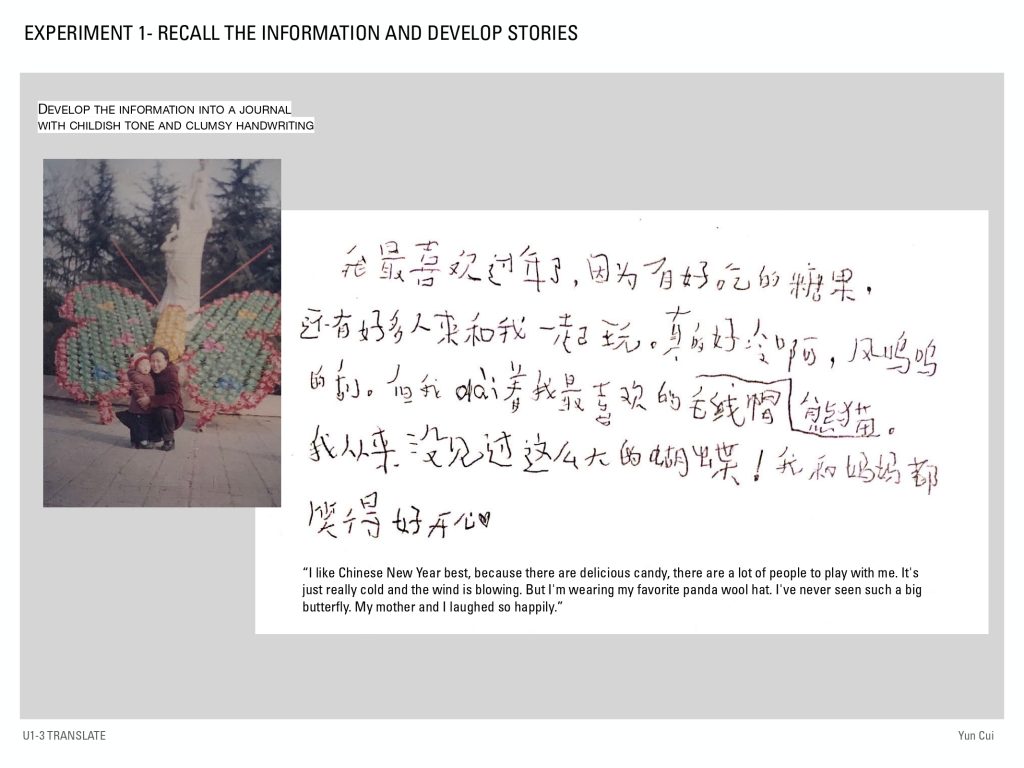 EXPERIMENT 1- RECALL THE INFORMATION AND DEVELOP STORIES
DEVELOP THE INFORMATION INTO A JOURNAL
WITH CHILDISH TONE AND CLUMSY HANDWRITING
我最喜欢过年了,因为有好吃的糖果.
还有好多人来和我一起玩。真的好冷啊,风呜呜
的刮。但我dài着我最喜欢的毛绒帽熊猫。
我从来没见过这么大的蝴蝶!我和妈妈都
笑得好开心♥
“I like Chinese New Year best, because there are delicious candy, there are a lot of people to play with me. It's
just really cold and the wind is blowing. But I'm wearing my favorite panda wool hat. I've never seen such a big
butterfly. My mother and I laughed so happily.”
U1-3 TRANSLATE
Yun Cui